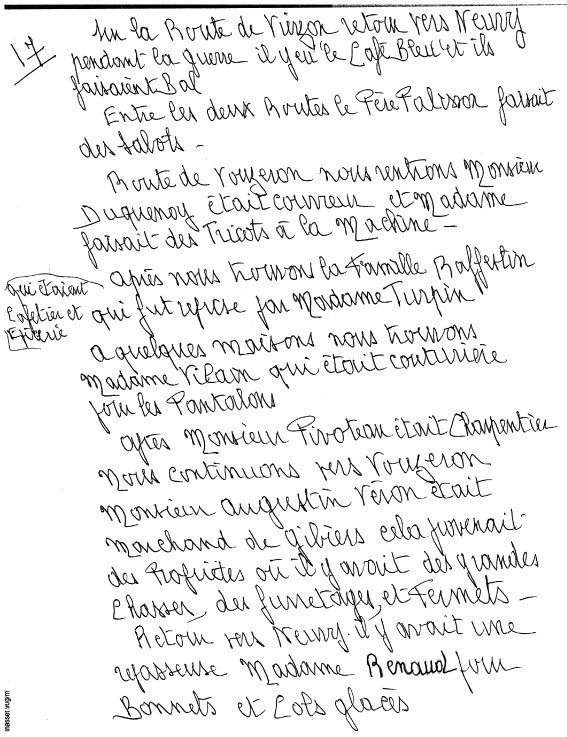 17
Sur la Route de Vierzon retour vers Neuvy
pendant la guerre il y eu "le Café Bleu" et ils
faisaient Bal
Entre les deux Routes le Père Palisson faisait
des Sabots -
Route de Vouzeron nous rentrions Monsieur
Duquenoy était couvreur et Madame
faisait des Tricots à la Machine -
après nous trouvons la Famille Raffestin
qui étaient
Cafetier et
Epicerie
qui fut reprise par Madame Turpin
a quelques maisons nous trouvons
Madame Vilain qui était couturière
pour les Pantalons
après Monsieur Pivoteau était Charpentier
nous continuons vers Vouzeron
Monsieur Augustin Véron était
Marchand de gibiers cela provenait
des Propriétés où il y avait des grandes
Chasses, des furretages, et Fermets -
Retour vers Neuvy il y avait une
repasseuse Madame Renaud pour
Bonnets et Cols glacés